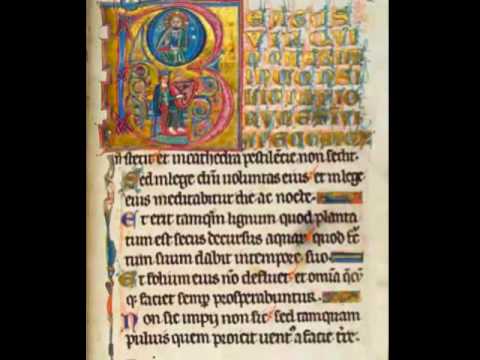 B EATUS
VIR QVI
NON ABIIT
IN CONSI
LIO IMPIO
RVM ET IN VI
n stetit et in cathedra pestilencie non sedit
Sed in lege dñi voluntas eius et in lege
eius meditabitur die ac nocte
Et erit tamqm lignum quod planta
tum est secus decursus aquar quod
tum suum dabit in tempore suo
Et folium eius nõ defluet et omĩa qcũ
q faciet semp prosperabuntur
Non sic impij non sic sed tamquam
puluis quem proicit vent a facie tre